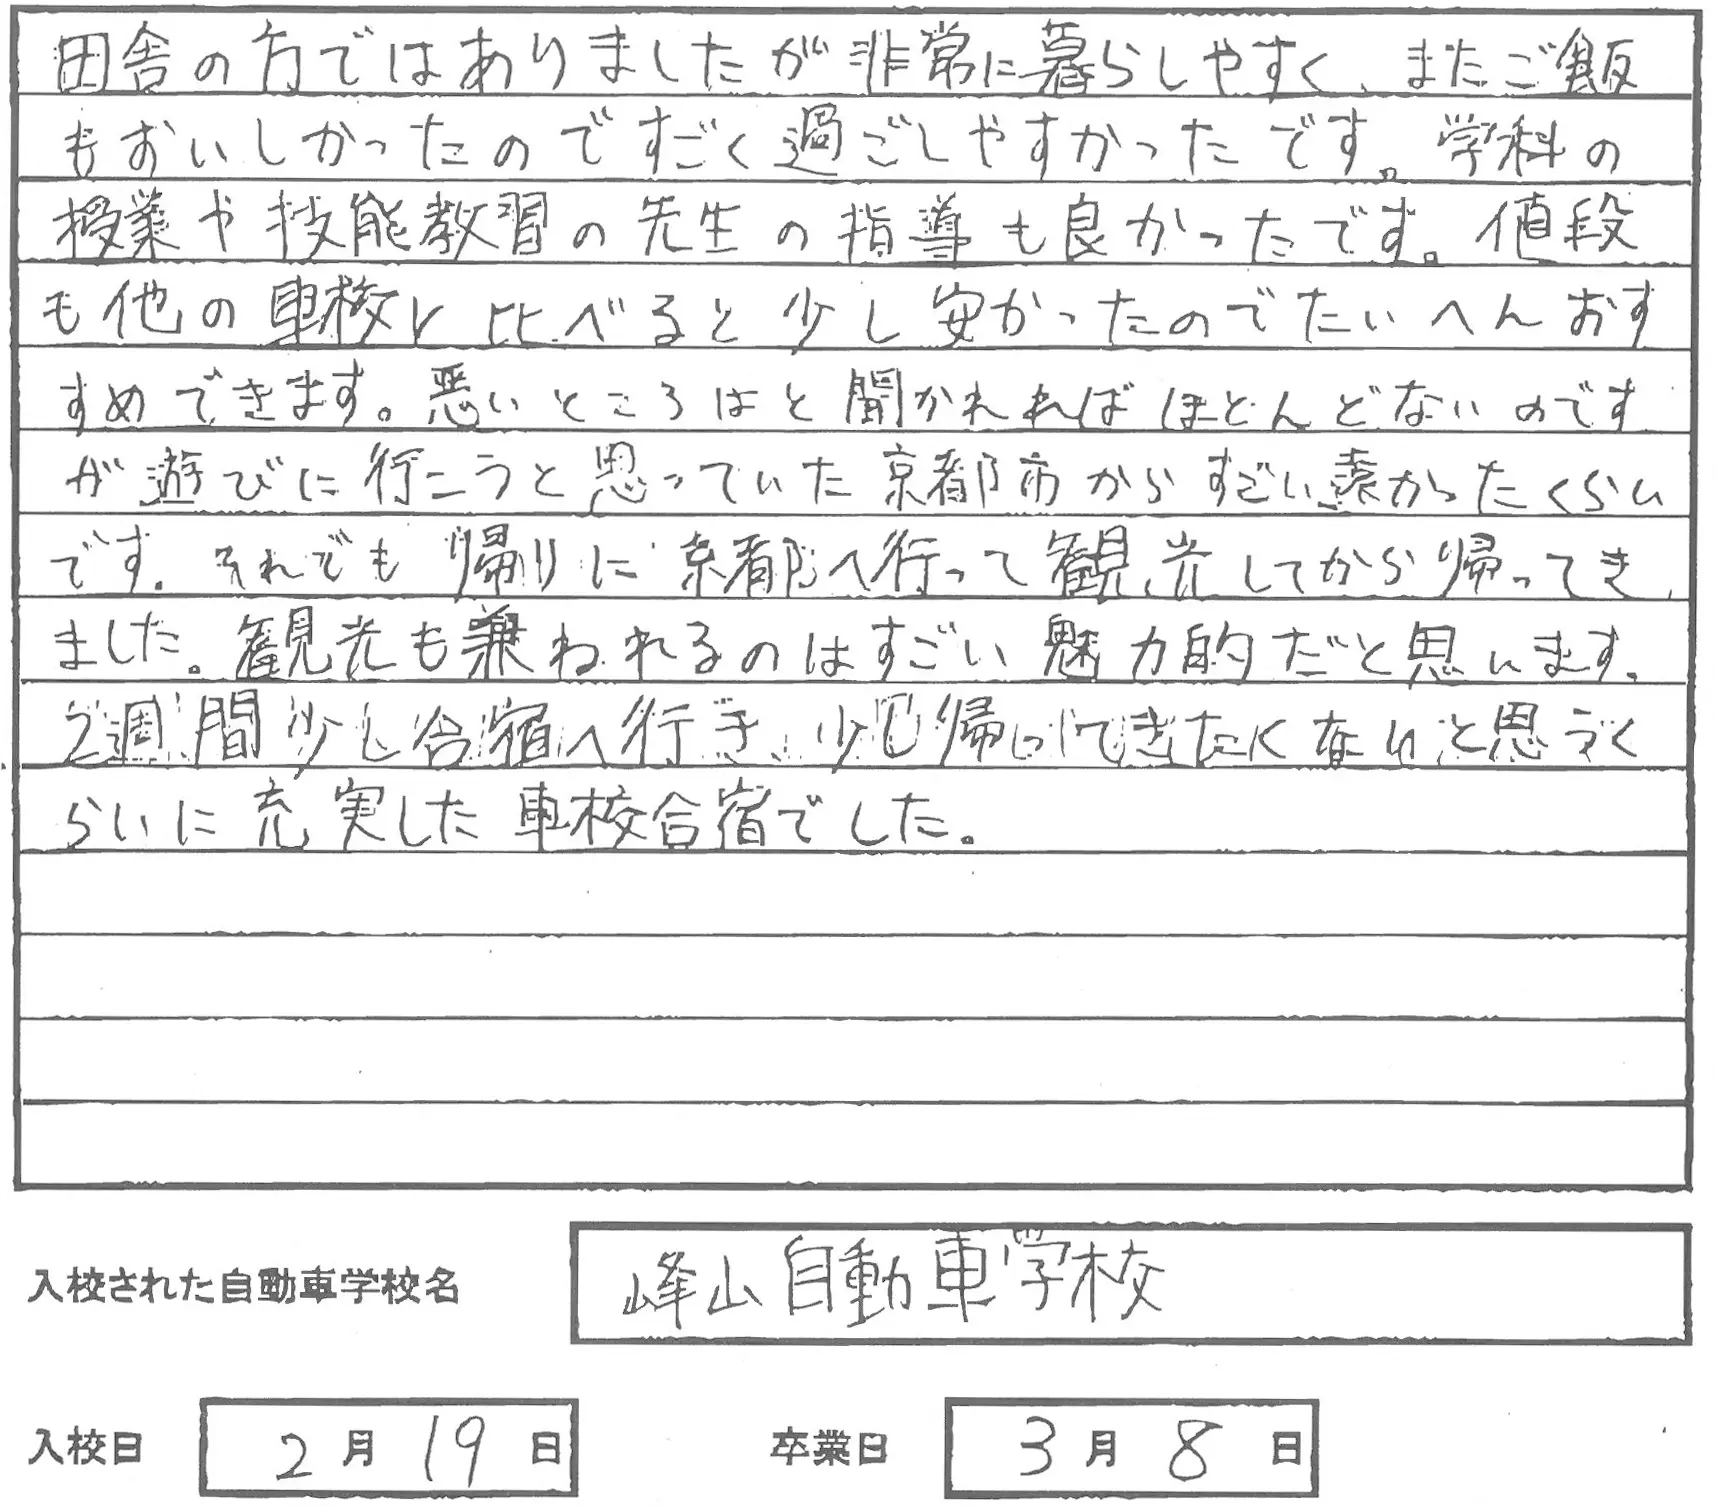 田舎の方ではありましたが非常に暮らしやすく、またご飯
もおいしかったのですごく過ごしやすかったです。学科の
授業や技能教習の先生の指導も良かったです。値段
も他の車校と比べると少し安かったのでたいへんおす
すめできます。悪いところはと聞かれればほとんどないのです
が遊びに行こうと思っていた京都市からすごい遠かったくらい
です。それでも帰りに京都へ行って観光してから帰ってき
ました。観光も兼ねれるのはすごい魅力的だと思います。
2週間少し合宿へ行き、少し帰ってきたくないと思うく
らいに充実した車校合宿でした。
入校された自動車学校名 峰山自動車学校
入校日 2月19日 卒業日 3月8日